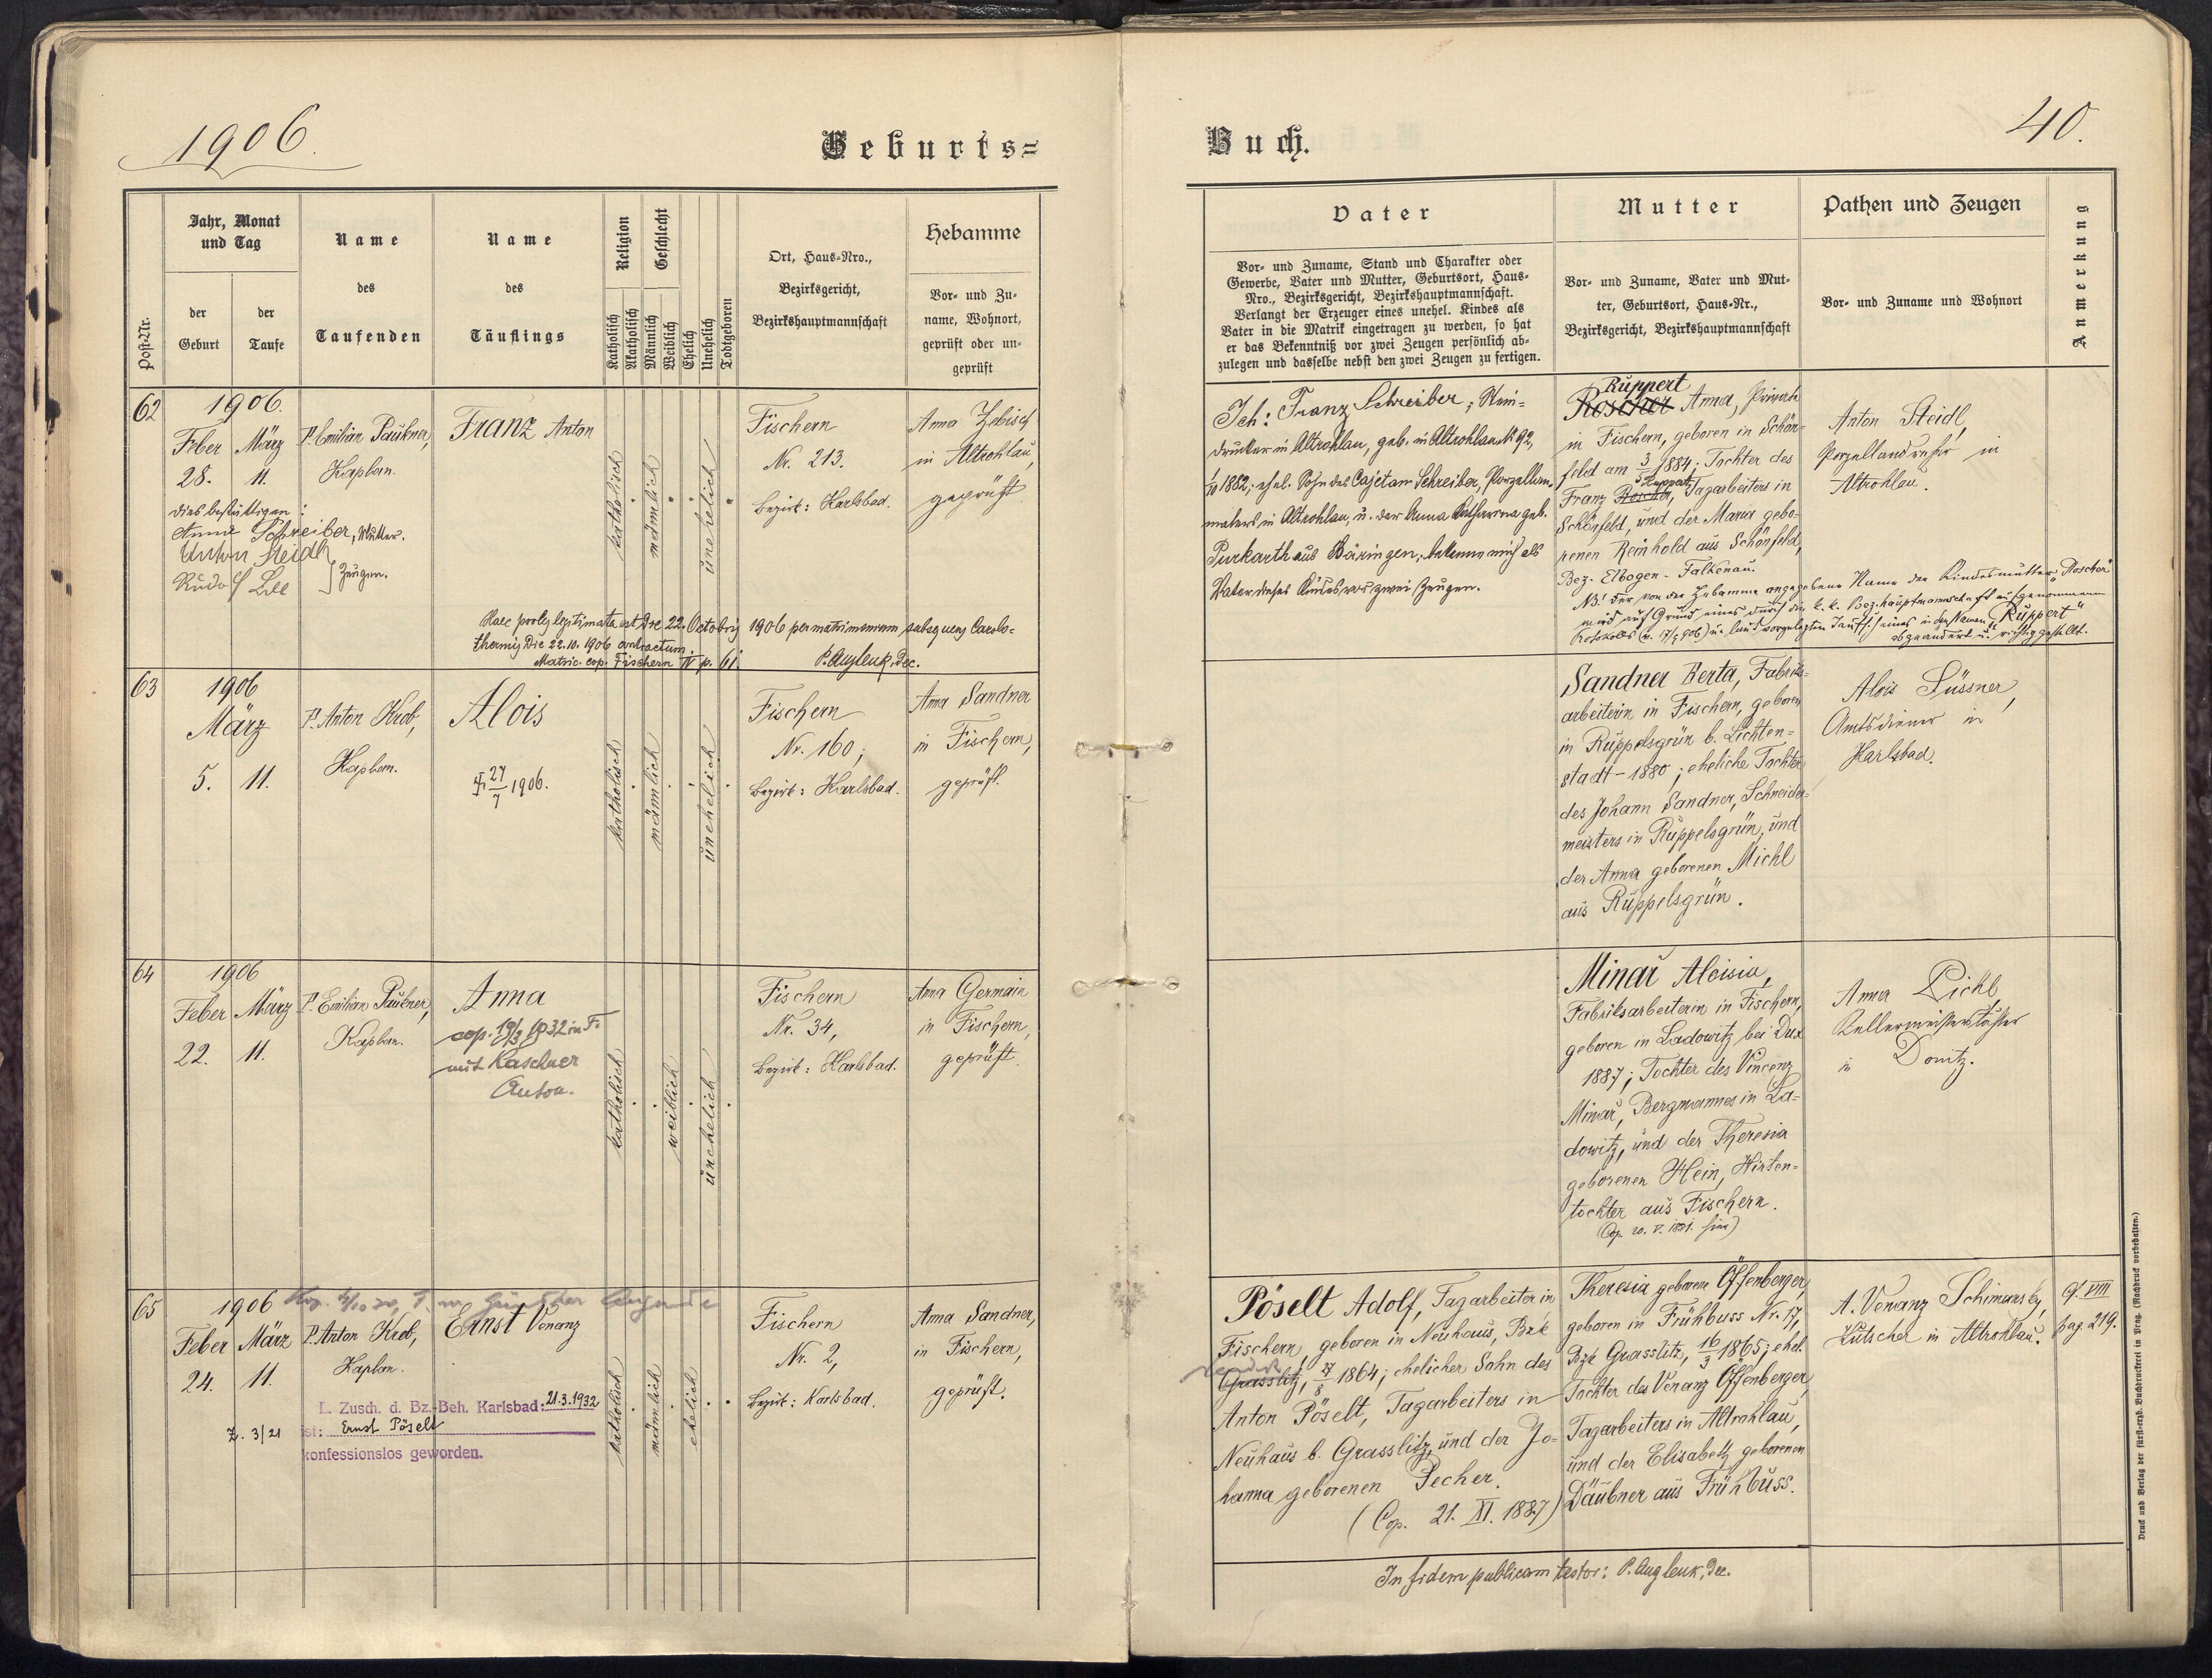 1906.
Geburts=
Post-Nr.
Jahr, Monat
und Tag
der
Geburt
der
Taufe
Name
des
Taufenden
Name
des
Täuflings
Religion
Katholisch
Akatholisch
Geschlecht
Männlich
Weiblich
Ehelich
Unehelich
Todtgeboren
Ort, Haus-Nro.,
Bezirksgericht,
Bezirkshauptmannschaft
Hebamme
Vor- und Zu-
name, Wohnort,
geprüft oder un-
geprüft
62
1906.
Feber
28.
März
11.
P. Emilian Paukner,
Kaplan.
Franz Anton
katholisch
männlich
unehelich
Fischern
Nr. 213.
Bezirk: Karlsbad.
Anna Zebisch
in Altrohlau,
geprüft
dies bestättigen:
Anna Schreiber, Mutter.
Anton Steidl
Rudolf
Zeugen.
Haec proles legitimata est die 22. Octobris 1906 per matrimonium subsequens Carolo=
thermis Die 22.10.1906 contractum.
Matric. cop. Fischern IV p. 61.
63
1906
März
5. 11.
P. Anton Krob,
Kaplan.
Alois
27/7 1906.
katholisch
männlich
unehelich
Fischern
Nr. 160;
Bezirk: Karlsbad.
Anna Sandner
in Fischern,
geprüft.
64
1906
Feber
22.
März
11.
P. Emilian Paukner,
Kaplan.
Anna
cop. 19/3 1932 in F.
mit Kaschner
Anton.
katholisch
weiblich
unehelich
Fischern
Nr. 34,
Bezirk: Karlsbad.
Anna Germain
in Fischern,
geprüft.
65
1906
Feber
24.
März
11.
P. Anton Krob,
Kaplan.
Ernst Venanz
Z. 3/21
L. Zusch. d. Bz.-Beh. Karlsbad: 21.3.1932
ist: Ernst Pöselt
konfessionslos geworden.
katholisch
männlich
ehelich
Fischern
Nr. 2,
Bezirk: Karlsbad.
Anna Sandner,
in Fischern,
geprüft.
Buch.
40.
Vater
Vor- und Zuname, Stand und Charakter oder
Gewerbe, Vater und Mutter, Geburtsort, Haus-
Nro., Bezirksgericht, Bezirkshauptmannschaft.
Verlangt der Erzeuger eines unehel. Kindes als
Vater in die Matrik eingetragen zu werden, so hat
er das Bekenntniß vor zwei Zeugen persönlich ab-
zulegen und dasselbe nebst den zwei Zeugen zu fertigen.
Mutter
Vor- und Zuname, Vater und Mut-
ter, Geburtsort, Haus-Nr.,
Bezirksgericht, Bezirkshauptmannschaft
Pathen und Zeugen
Vor- und Zuname und Wohnort
Anmerkung
Ich: Franz Schreiber, Stein=
drucker in Altrohlau, geb. in Altrohlau N. 92,
1/10 1882; ehel. Sohn des Cajetan Schreiber, Porzellan=
malers in Altrohlau, u. der Anna Katharina geb.
Purkarth aus Bäringen; bekenne mich als
Vater dieses Kindes vor zwei Zeugen.
Ruppert
Roscher Anna, Private
in Fischern, geboren in Schön=
feld am 3/5 1884; Tochter des
Ruppert
Franz Roscher, Tagarbeiters in
Schönfeld, und der Maria gebo=
renen Reinhold aus Schönfeld,
Bez. Elbogen - Falkenau.
NB! Der von der Hebamme angegebene Name der Kindesmutter "Roscher"
wird auf Grund eines durch die k. k. Bez.hauptmannschaft aufgenommenen
Protokolls u. laut vorgelegten Taufscheines in den Namen "Ruppert"
abgeändert u. richtiggestellt.
Anton Steidl,
Porzellandreher in
Altrohlau.
Sandner Berta, Fabriks=
arbeiterin in Fischern, geboren
in Ruppelsgrün b. Lichten=
stadt - 1880; eheliche Tochter
des Johann Sandner, Schneider=
meisters in Ruppelsgrün, und
der Anna geborenen Michl
aus Ruppelsgrün.
Alois Süssner,
Amtsdiener in
Karlsbad.
Minař Aloisia,
Fabriksarbeiterin in Fischern,
geboren in Ladowitz bei Dux
1887; Tochter des Vincenz
Minař, Bergmannes in La=
dowitz, und der Theresia
geborenen Hein, Hirten=
tochter aus Fischern.
Anna Pichl
Kellermeisterstochter
in Donitz.
Pöselt Adolf, Tagarbeiter in
Fischern, geboren in Neuhaus, Bzk
Neudek
Grasslitz, 27/8 1864; ehelicher Sohn des
Anton Pöselt, Tagarbeiters in
Neuhaus b. Grasslitz, und der Jo=
hanna geborenen Pecher.
(Cop. 21. XI. 1887)
Theresia geborene Öffenberger,
geboren in Frühbuss Nr. 17,
Bzk Grasslitz, 16/3 1865; ehel.
Tochter des Venanz Öffenberger,
Tagarbeiters in Altrohlau,
und der Elisabeth geborenen
Däubner aus Frühbuss.
A. Venanz Schimansky,
Kutscher in Altrohlau.
cf. VIII
pag. 219.
In fidem publicam testor:
Druck und Verlag der fürst-erzb. Buchdruckerei in Prag. (Nachdruck vorbehalten.)